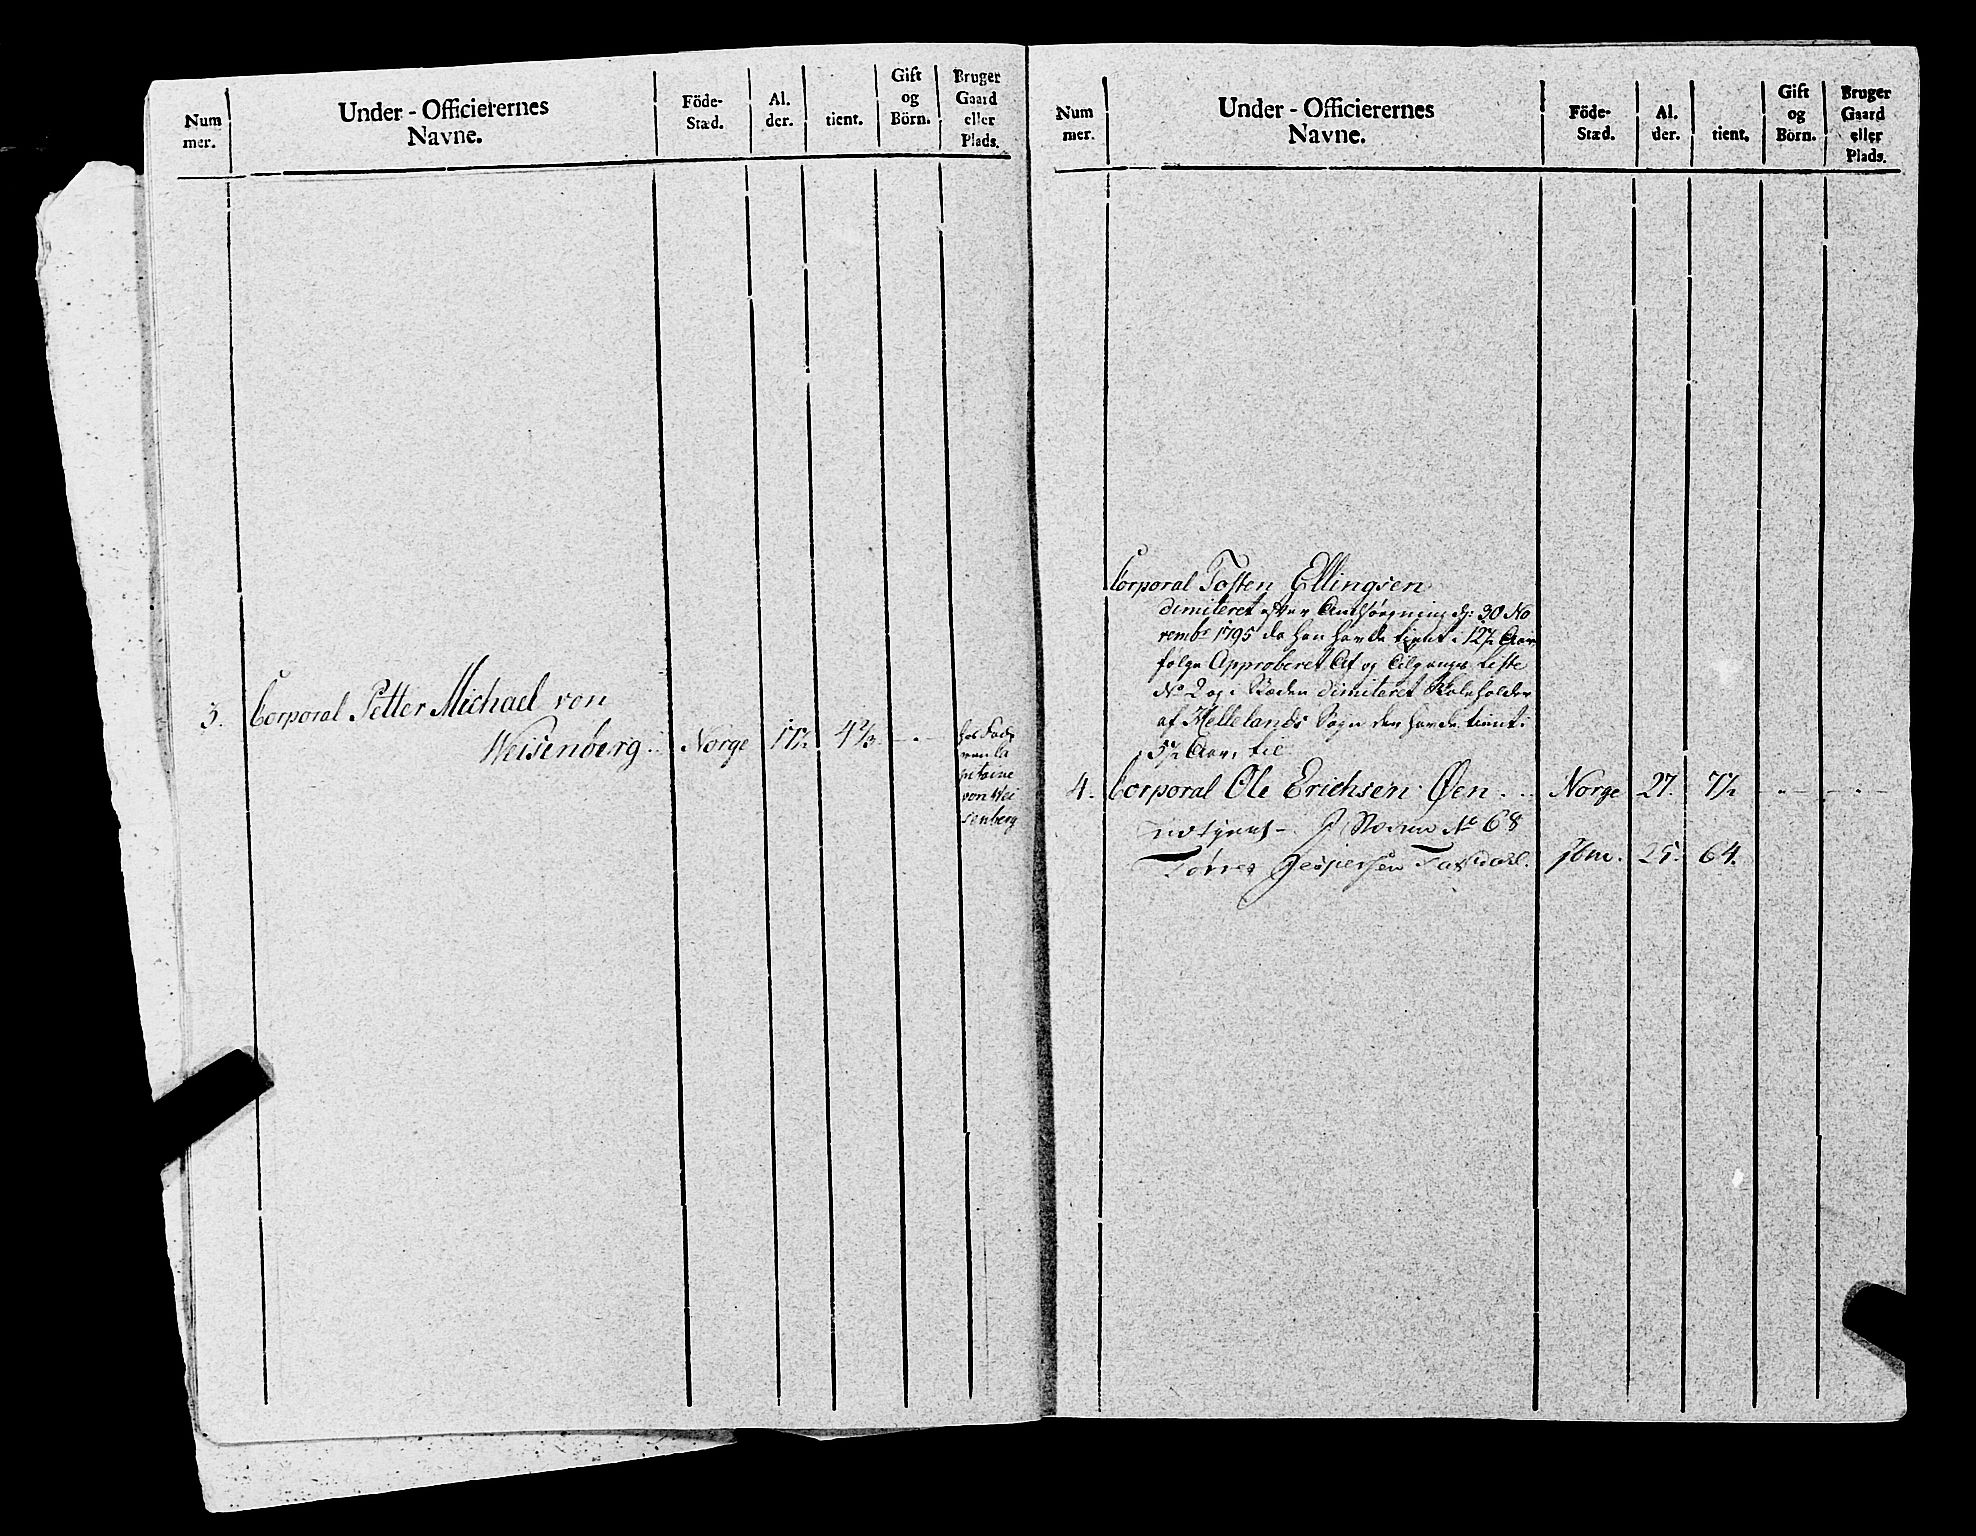 Num
mer.
Under - Officierernes
Navne.
Föde-
Stæd.
Al.
der.
tient.
Gift
og
Börn.
Bruger
Gaard
eller
Plads.
3. Corporal Petter Michael von
Weisenberg Norge 17½ 4⅔
von Wei
senberg
Num
mer.
Under - Officierernes
Navne.
Föde-
Stæd.
Al.
der.
tient.
Gift
og
Börn.
Bruger
Gaard
eller
Plads.
Corporal Tosten Ellingsen
dimiteret efter 30 No
vembr 1795 da han havde tient i 12½ Aar,
følge Approberet Af og Tilgangs Liste
No 2 og i Stæden dimiteret
af Hellelands Sogn der havde tient i
5½ Aar, til
4. Corporal Ole Erichsen Øen Norge 27. 7½
No 68
Jespersen 25. 64.